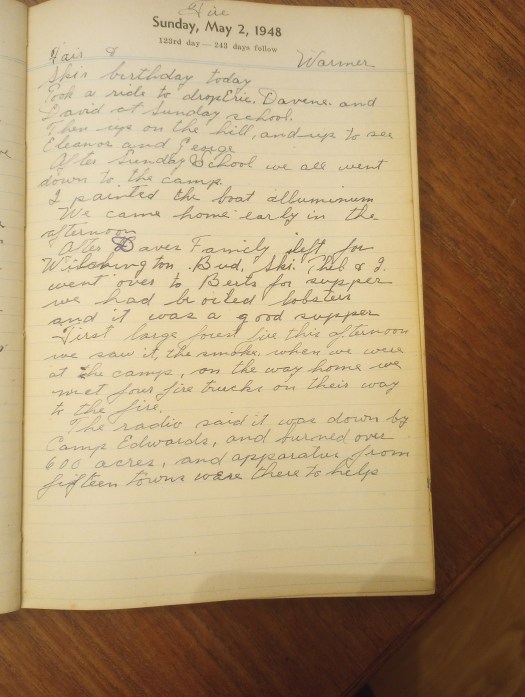 Fire
Sunday, May 2, 1948
123rd day — 243 days follow
Fair & Warmer
Skis birthday today
Took a ride to drop Eric, Davene. and
David at Sunday school.
Then up on the hill, and up to see
Eleanor and George
After Sunday School we all went
down to the camp.
I painted the boat alluminum
We came home early in the
afternoon
After Daves Family left for
Wilmington. Bud, Ski. Theb & I.
went over to Berts for supper
we had boiled lobsters
and it was a good supper
First large forest fire this afternoon
we saw it, the smoke. when we were
at the camp, on the way home we
met four fire trucks on their way
to the fire.
The radio said it was down by
Camp Edwards, and burned over
600 acres, and apparatus from
fifteen towns were there to help